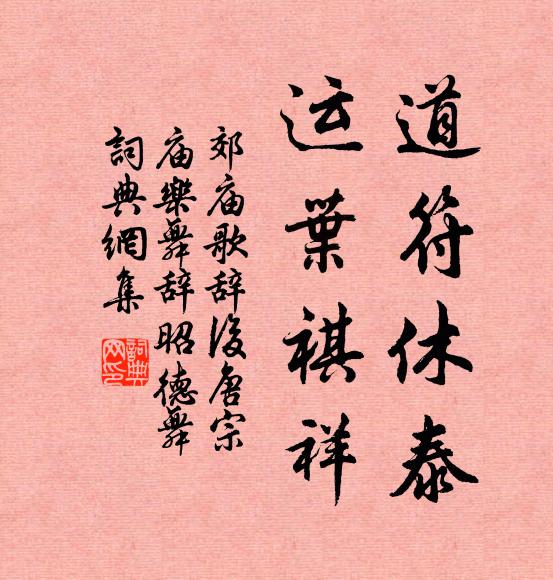 道符休泰
运葉祺祥
郊庙歌辞後唐宗
庙樂舞辞昭德舞
詞典網集
詞典網印